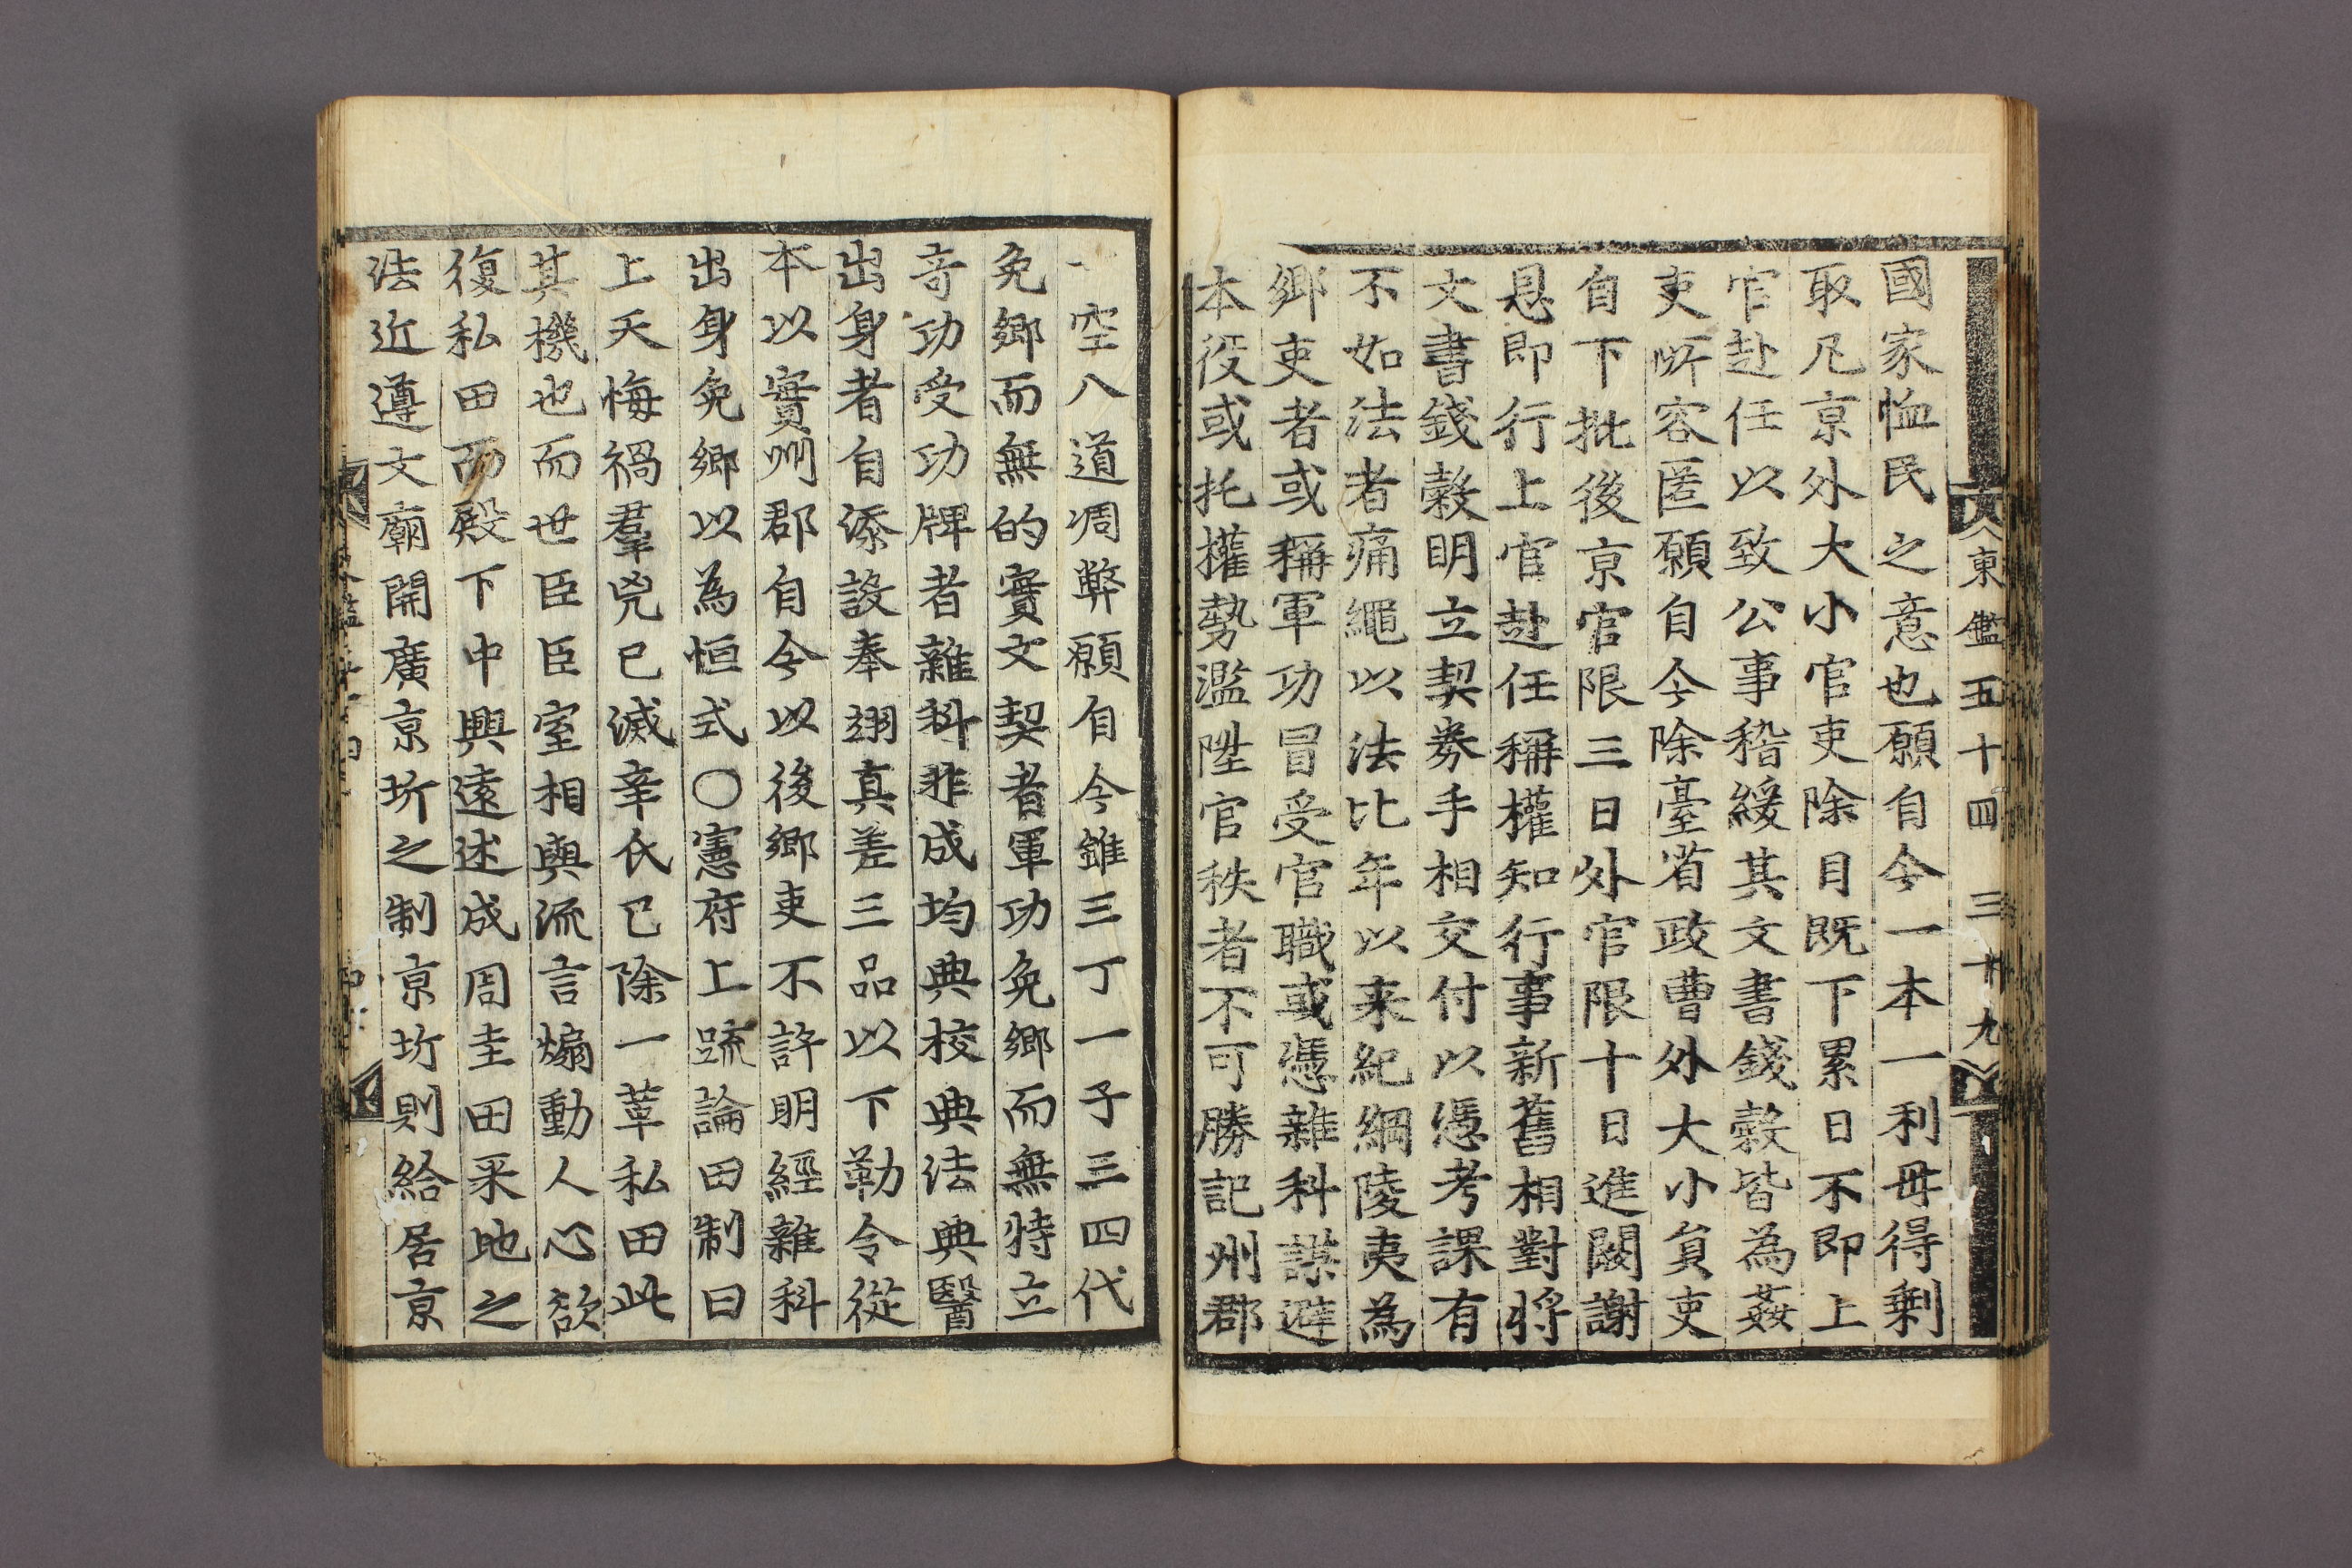 東鑑五十四 三十九
國家恤民之意也願自今一本一利毋得剩
取凡京外大小官吏除目既下累日不即上
官赴任以致公事稽緩其文書錢穀皆為姦
吏所容匿願自今除臺省政曹外大小貟吏
自下批後京官限三日外官限十日進闕謝
恩即行上官赴任稱權知行事新舊相對將
文書錢穀明立契券手相交付以憑考課有
不如法者痛繩以法比年以来紀綱陵夷為
鄉吏者或稱軍功冒受官職或憑雜科謀避
本役或托權勢濫陞官秩者不可勝記州郡
一空八道凋弊願自今雖三丁一子三四代
免鄉而無的實文契者軍功免鄉而無特立
竒功受功牌者雜科非成均典校典法典醫
出身者自添設奉翊真差三品以下勒令從
本以實州郡自今以後鄉吏不許明經雜科
出身免鄉以為恒式○憲府上䟽論田制曰
上天悔禍羣兇已滅辛氏已除一革私田此
其機也而世臣臣室相與流言煽動人心欲
復私田而殿下中興遠述成周圭田采地之
法近遵文廟開廣京圻之制京圻則給居京